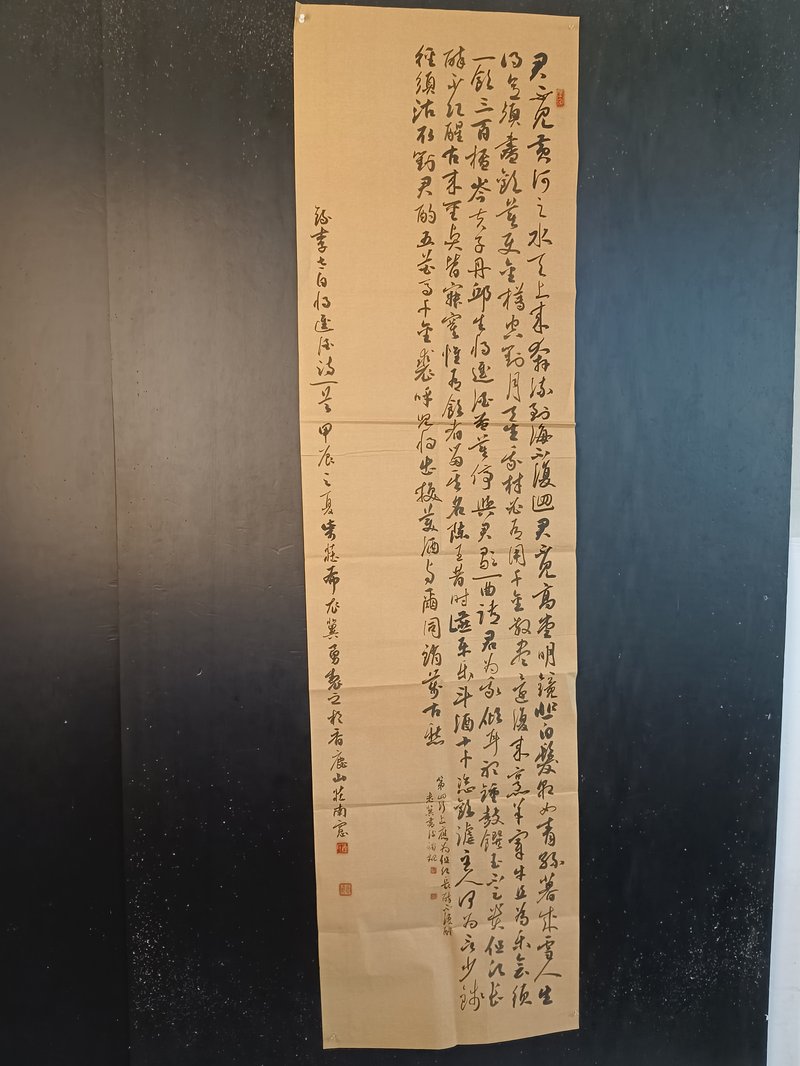 君不見黃河之水天上來奔流到海不復迴君不見高堂明鏡悲白髮朝如青絲暮成雪人生
得意須盡歡莫使金樽空對月天生我材必有用千金散盡還復來烹羊宰牛且為樂會須
一飲三百杯岑夫子丹邱生將進酒君莫停與君歌一曲請君為我傾耳聽鐘鼓饌玉不足貴但願長
醉不願醒古來聖賢皆寂寞惟有飲者留其名陳王昔時宴平樂斗酒十千恣歡謔主人何為言少錢
徑須沽取對君酌五花馬千金裘呼兒將出換美酒與爾同銷萬古愁
第四行上應為但願長醉不復醒
老冀書後補記
錄李太白將進酒詩一首甲辰之夏冀勇書之於香鹿山莊南窗